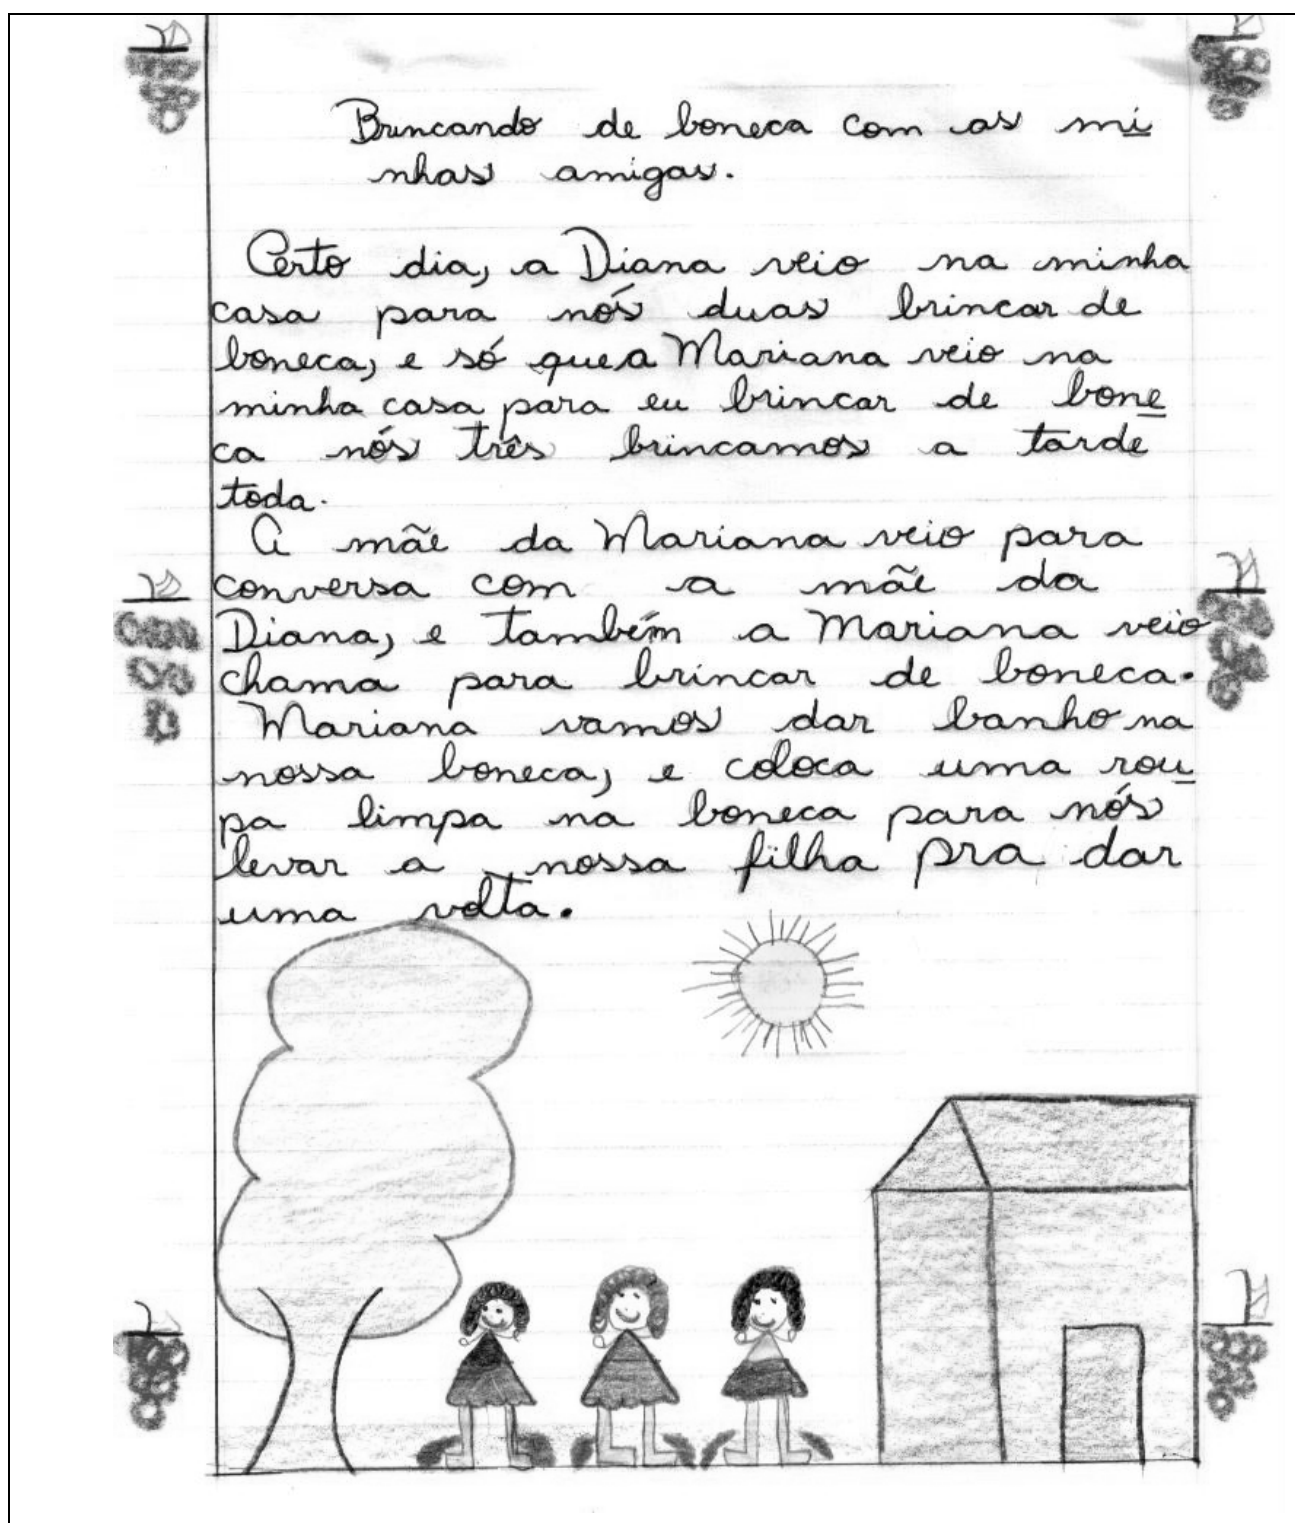 Brincando de boneca com as mi
nhas amigas.
Certo dia, a Diana veio na minha
casa para nós duas brincar de
boneca, e só que a Mariana veio na
minha casa para eu brincar de bone
ca nós três brincamos a tarde
toda.
A mãe da Mariana veio para
conversa com a mãe da
Diana, e também a Mariana veio
chama para brincar de boneca.
Mariana vamos dar banho na
nossa boneca, e coloca uma rou
pa limpa na boneca para nós
levar a nossa filha pra dar
uma volta.